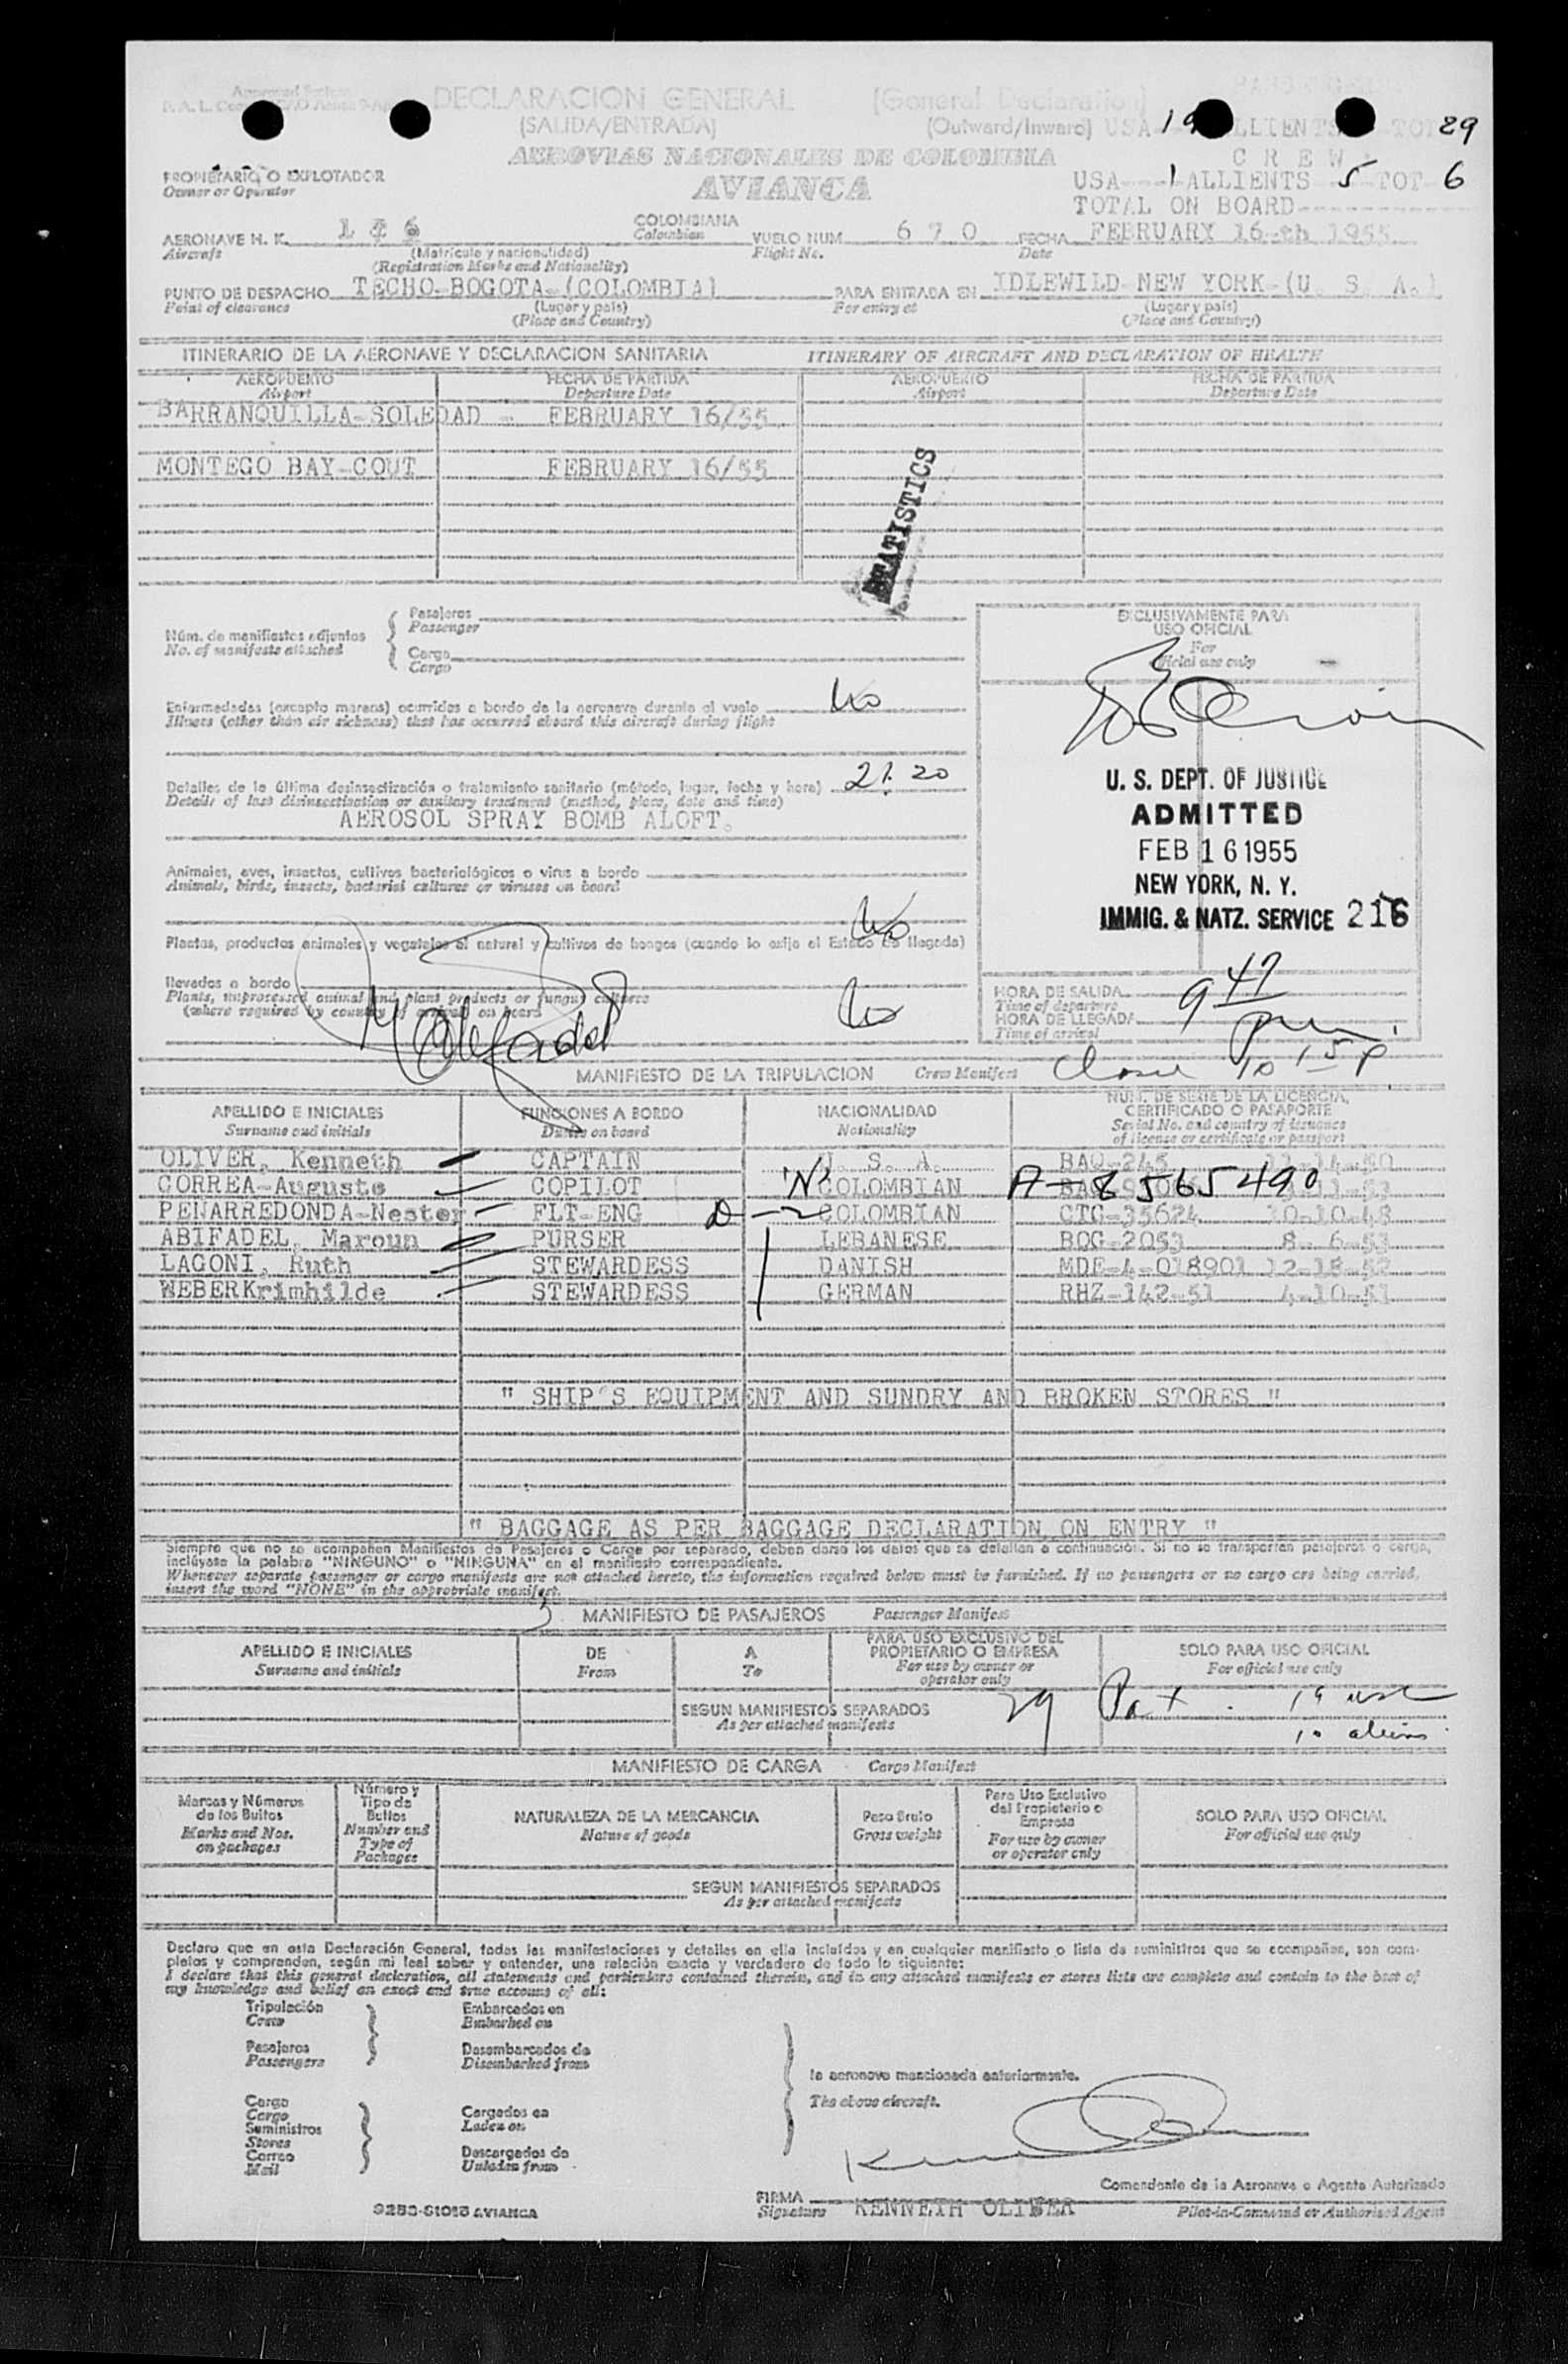 DECLARACION GENERAL (General Declaration)
(SALIDA/ENTRADA) (Outward/Inward) USA 19 ALLIENTS TOT 29
AEROVIAS NACIONALES DE COLOMBIA CREW
PROPIETARIO O EXPLOTADOR AVIANCA USA---1 ALLIENTS 5 TOT 6
Owner or Operator TOTAL ON BOARD------------
AERONAVE H. K. COLOMBIANA VUELO NUM 670 FECHA FEBRUARY 16-th 1955
Aircraft (Matrícula y nacionalidad) Colombian Flight No. Date
(Registration Marks and Nationality)
PUNTO DE DESPACHO TECHO-BOGOTA-(COLOMBIA) PARA ENTRADA EN IDLEWILD-NEW YORK-(U. S. A.)
Point of clearance (Lugar y país) For entry at (Lugar y país)
(Place and Country) (Place and Country)
ITINERARIO DE LA AERONAVE Y DECLARACION SANITARIA ITINERARY OF AIRCRAFT AND DECLARATION OF HEALTH
AEROPUERTO FECHA DE PARTIDA AEROPUERTO FECHA DE PARTIDA
Airport Departure Date Airport Departure Date
BARRANQUILLA-SOLEDAD - FEBRUARY 16/55
MONTEGO BAY-COUT FEBRUARY 16/55
STATISTICS
Núm. de manifiestos adjuntos Pasajeros
No. of manifests attached Passenger
Carga
Cargo
EXCLUSIVAMENTE PARA
USO OFICIAL
For
official use only
Enfermedades (excepto mareos) ocurridas a bordo de la aeronave durante el vuelo No
Illness (other than air sickness) that has occurred aboard this aircraft during flight
Detalles de la última desinsectización o tratamiento sanitario (método, lugar, fecha y hora) 21.20
Details of last disinsectisation or sanitary treatment (method, place, date and time)
AEROSOL SPRAY BOMB ALOFT.
U. S. DEPT. OF JUSTICE
ADMITTED
FEB 16 1955
NEW YORK, N. Y.
IMMIG. & NATZ. SERVICE 216
Animales, aves, insectos, cultivos bacteriológicos o virus a bordo
Animals, birds, insects, bacterial cultures or viruses on board
No
Plantas, productos animales y vegetales al natural y cultivos de hongos (cuando lo exija el Estado de llegada)
llevados a bordo
Plants, unprocessed animal and plant products or fungus cultures
(where required by country of arrival) on board
No
HORA DE SALIDA 9 47
Time of departure
HORA DE LLEGADA pm.
Time of arrival
MANIFIESTO DE LA TRIPULACION Crew Manifest
APELLIDO E INICIALES FUNCIONES A BORDO NACIONALIDAD NUM. DE SERIE DE LA LICENCIA,
CERTIFICADO O PASAPORTE
Surname and initials Duties on board Nationality Serial No. and country of issuance
of license or certificate or passport
OLIVER, Kenneth CAPTAIN U. S. A. BAQ-245 11-14-50
CORREA-Augusto COPILOT "N" COLOMBIAN A-8565490
PEÑARREDONDA-Nestor FLT-ENG D COLOMBIAN CTG-35624 10-10-48
ABIFADEL, Maroun PURSER LEBANESE BOG-2053 8- 6-53
LAGONI, Ruth STEWARDESS DANISH MDE-4-018901 12-18-52
WEBERKrimhilde STEWARDESS GERMAN RHZ-142-51 4-10-51
" SHIP'S EQUIPMENT AND SUNDRY AND BROKEN STORES "
" BAGGAGE AS PER BAGGAGE DECLARATION ON ENTRY "
Siempre que no se acompañen Manifiestos de Pasajeros o Carga por separado, deben darse los datos que se detallan a continuación. Si no se transportan pasajeros o carga,
inclúyase la palabra "NINGUNO" o "NINGUNA" en el manifiesto correspondiente.
Whenever separate passenger or cargo manifests are not attached hereto, the information required below must be furnished. If no passengers or no cargo are being carried,
insert the word "NONE" in the appropriate manifest.
MANIFIESTO DE PASAJEROS Passenger Manifest
APELLIDO E INICIALES DE A PARA USO EXCLUSIVO DEL
PROPIETARIO O EMPRESA SOLO PARA USO OFICIAL
Surname and initials From To For use by owner or
operator only For official use only
SEGUN MANIFIESTOS SEPARADOS 29 Pax. 19 usc
As per attached manifests 10 aliens
MANIFIESTO DE CARGA Cargo Manifest
Marcas y Números
de los Bultos
Marks and Nos.
on packages
Número y
Tipo de
Bultos
Number and
Type of
Packages
NATURALEZA DE LA MERCANCIA
Nature of goods
Peso Bruto
Gross weight
Para Uso Exclusivo
del Propietario o
Empresa
For use by owner
or operator only
SOLO PARA USO OFICIAL
For official use only
SEGUN MANIFIESTOS SEPARADOS
As per attached manifests
Declaro que en esta Declaración General, todas las manifestaciones y detalles en ella incluídos y en cualquier manifiesto o lista de suministros que se acompañan, son com-
pletos y comprenden, según mi leal saber y entender, una relación exacta y verdadera de todo lo siguiente:
I declare that this general declaration, all statements and particulars contained therein, and in any attached manifests or stores lists are complete and contain to the best of
my knowledge and belief an exact and true account of all:
Tripulación Embarcados en
Crew Embarked on
Pasajeros Desembarcados de
Passengers Disembarked from
la aeronave mencionada anteriormente.
The above aircraft.
Carga
Cargo Cargados en
Suministros Laden on
Stores
Correo Descargados de
Mail Unladen from
Comandante de la Aeronave o Agente Autorizado
FIRMA KENNETH OLIVER
Signature Pilot-in-Command or Authorised Agent
9253-61015 AVIANCA